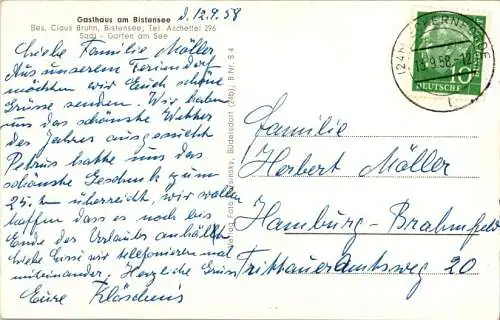 Gasthaus am Bistensee
Bes. Claus Bruhn, Bistensee, Tel. Aschettel 296
Saal - Garten am See
d. 12.9.58
Liebe Familie Möller
Aus unserem Feriendorf
möchten wir Euch schöne
Grüsse senden. Wir haben
uns das schönste Wetter
des Jahres ausgesucht
Petrus hatte uns das
schönste Geschenk zum
25.ten überreicht, wir wollen
hoffen dass es noch bis
Ende des Urlaubs anhält
Liebe wir telefonieren mal
miteinander. Herzliche Grüsse
Eure Kläschen's
Verlag Foto Büdelsdorf (24b), B.Nr. S 4
DEUTSCHE
10
9.58.-12
Familie
Herbert Möller
Hamburg-Bramfeld
Trittaueramtsweg 20